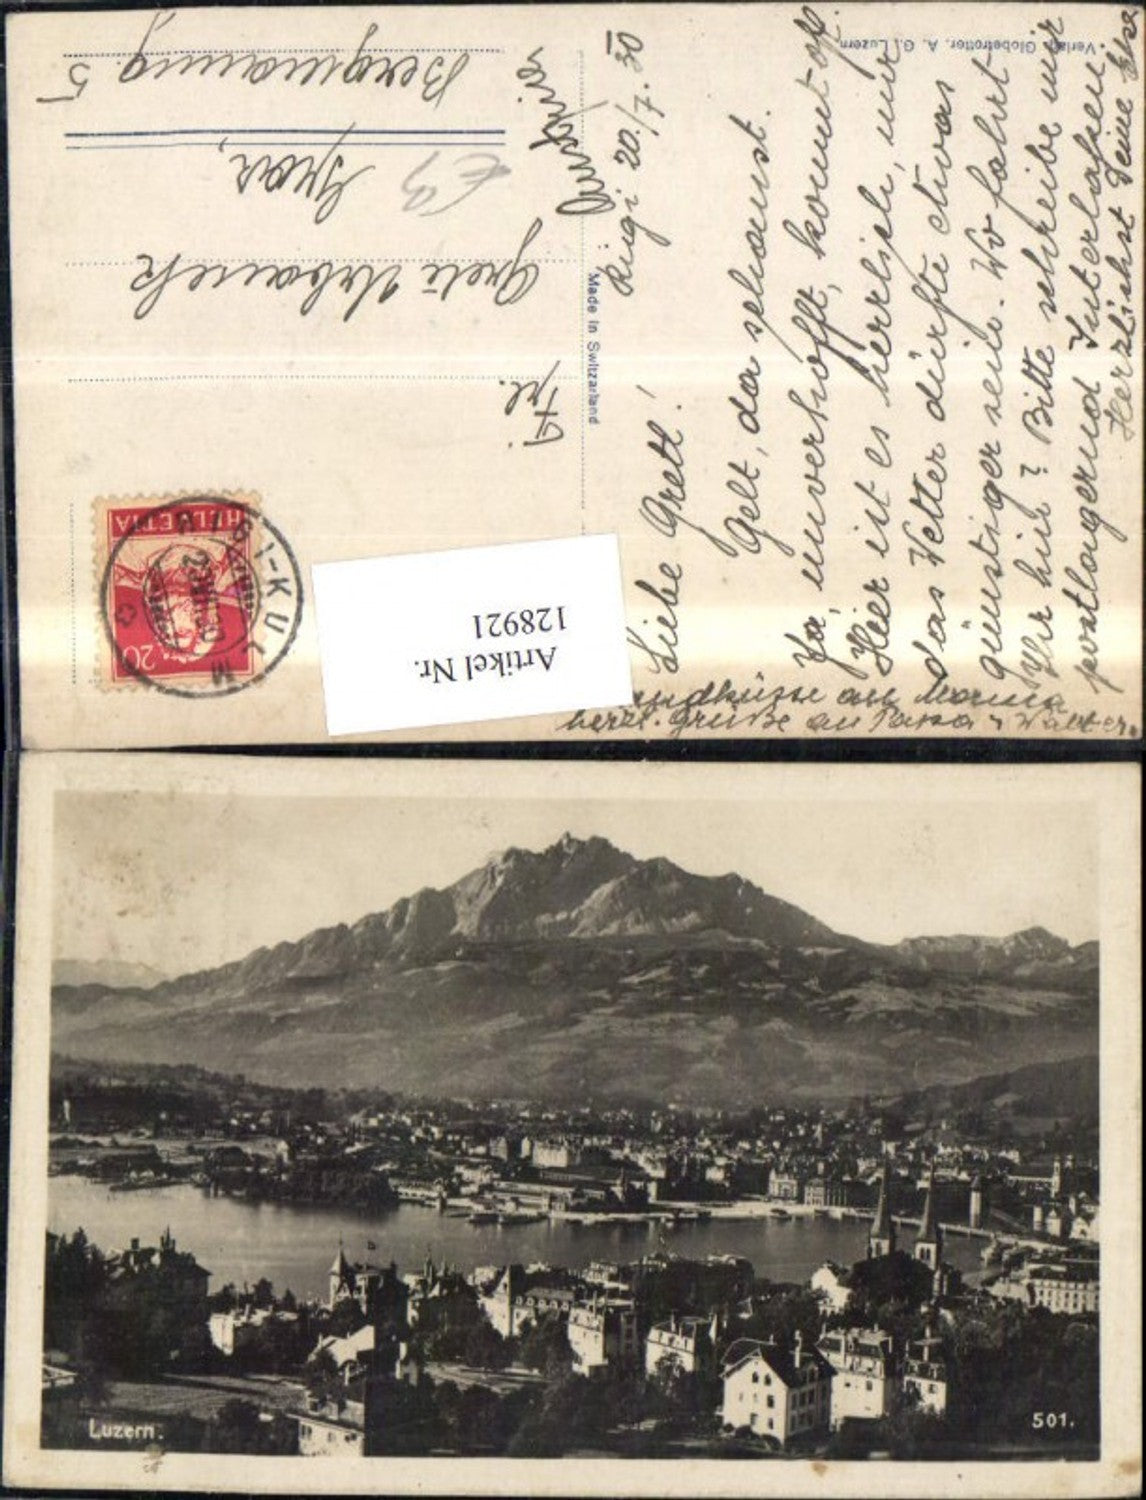 Rigi 20./7. 30
Liebe Gretl!
Gelt, da schaust.
Ja, unverhofft, kommt oft.
Hier ist es herrlich, nur
das Wetter dürfte etwas
günstiger sein. Wo fahrt
Ihr hin? Bitte schreibe mir
postlagernd Interlaken
Herzlichst Deine Else
Handküsse an Mama
herzl. Grüße an Papa u. Walter.
Verlag Globetrotter, A. G., Luzern
Made in Switzerland
HELVETIA
20
RIGI-KULM
Frl.
Gretl Urbanek
Graz,
Bergmanng.
5
Austria
Artikel Nr.
128921
Luzern.
501.